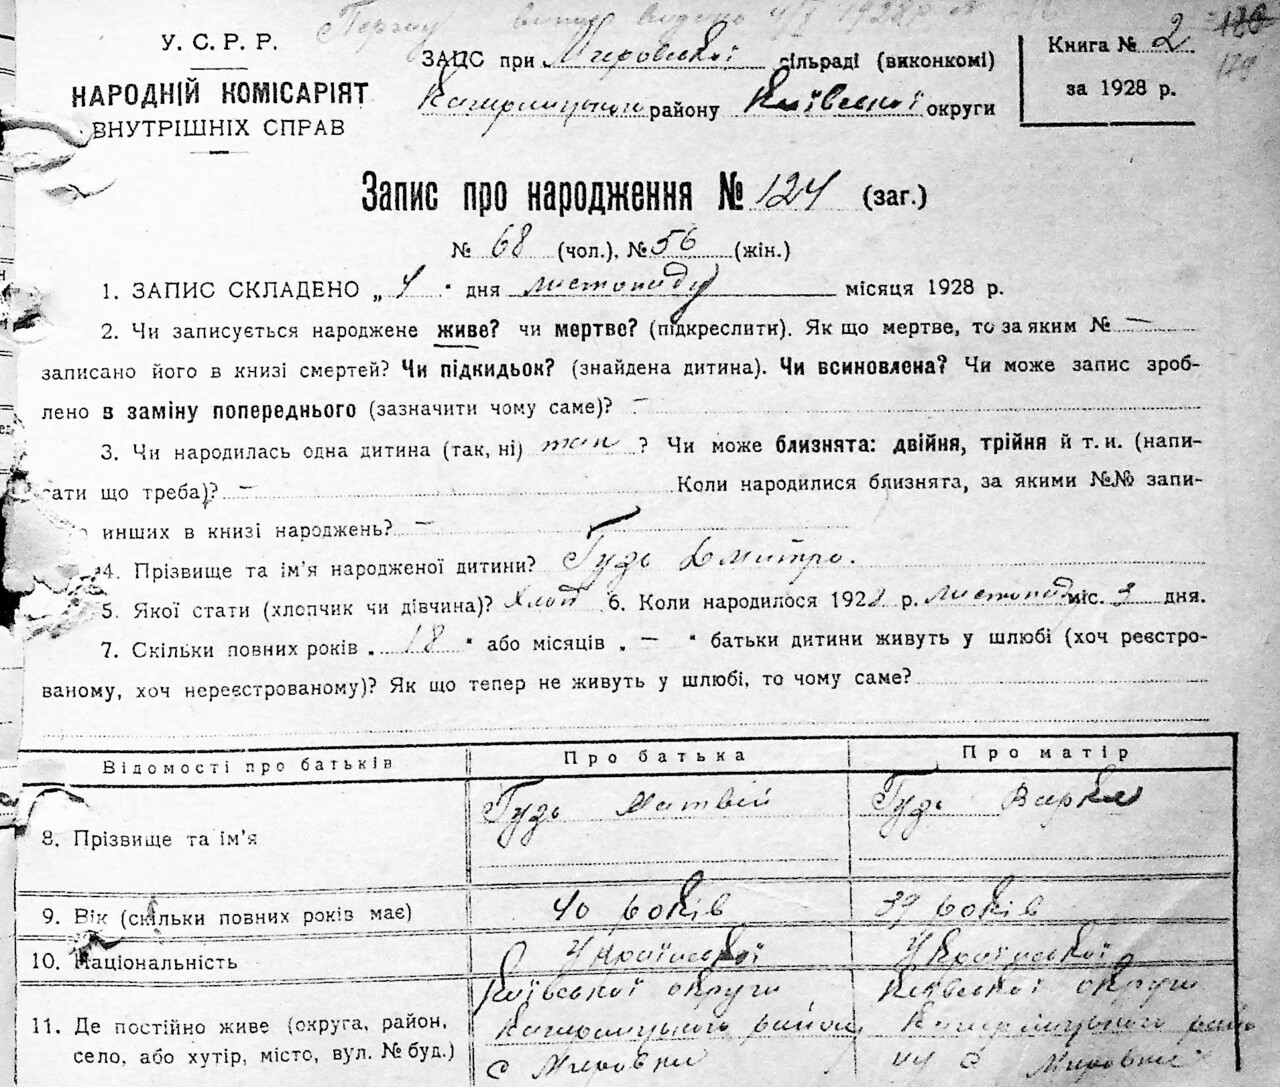 У. С. Р. Р.
НАРОДНІЙ КОМІСАРІЯТ
ВНУТРІШНІХ СПРАВ
ЗАЦС при Мировської сільраді (виконкомі)
Кагарлицького району Київської округи
Книга № 2
за 1928 р.
Запис про народження № 124 (заг.)
№ 68 (чол.), № 56 (жін.)
1. ЗАПИС СКЛАДЕНО „ 4 " дня листопаду місяця 1928 р.
2. Чи записується народжене живе? чи мертве? (підкреслити). Як що мертве, то за яким № —
записано його в книзі смертей? Чи підкидьок? (знайдена дитина). Чи всиновлена? Чи може запис зроб-
лено в заміну попереднього (зазначити чому саме)? —
3. Чи народилась одна дитина (так, ні) так ? Чи може близнята: двійня, трійня й т. и. (напи-
сати що треба)? — Коли народилися близнята, за якими №№ запи-
инших в книзі народжень? —
4. Прізвище та ім'я народженої дитини? Гудь Дмитро.
5. Якої статі (хлопчик чи дівчина)? хлоп 6. Коли народилося 1928 р. листопад міс. 3 дня.
7. Скільки повних років „ 18 " або місяців „ — " батьки дитини живуть у шлюбі (хоч реєстро-
ваному, хоч нереєстрованому)? Як що тепер не живуть у шлюбі, то чому саме?
Відомості про батьків Про батька Про матір
8. Прізвище та ім'я Гудь Матвій Гудь Варка
9. Вік (скільки повних років має) 40 років 39 років
10. Національність Української Української
11. Де постійно живе (округа, район, село, або хутір, місто, вул. № буд.)
Київської округи Кагарлицького району с Мировки
Київської округи Кагарлицького району с Мировки